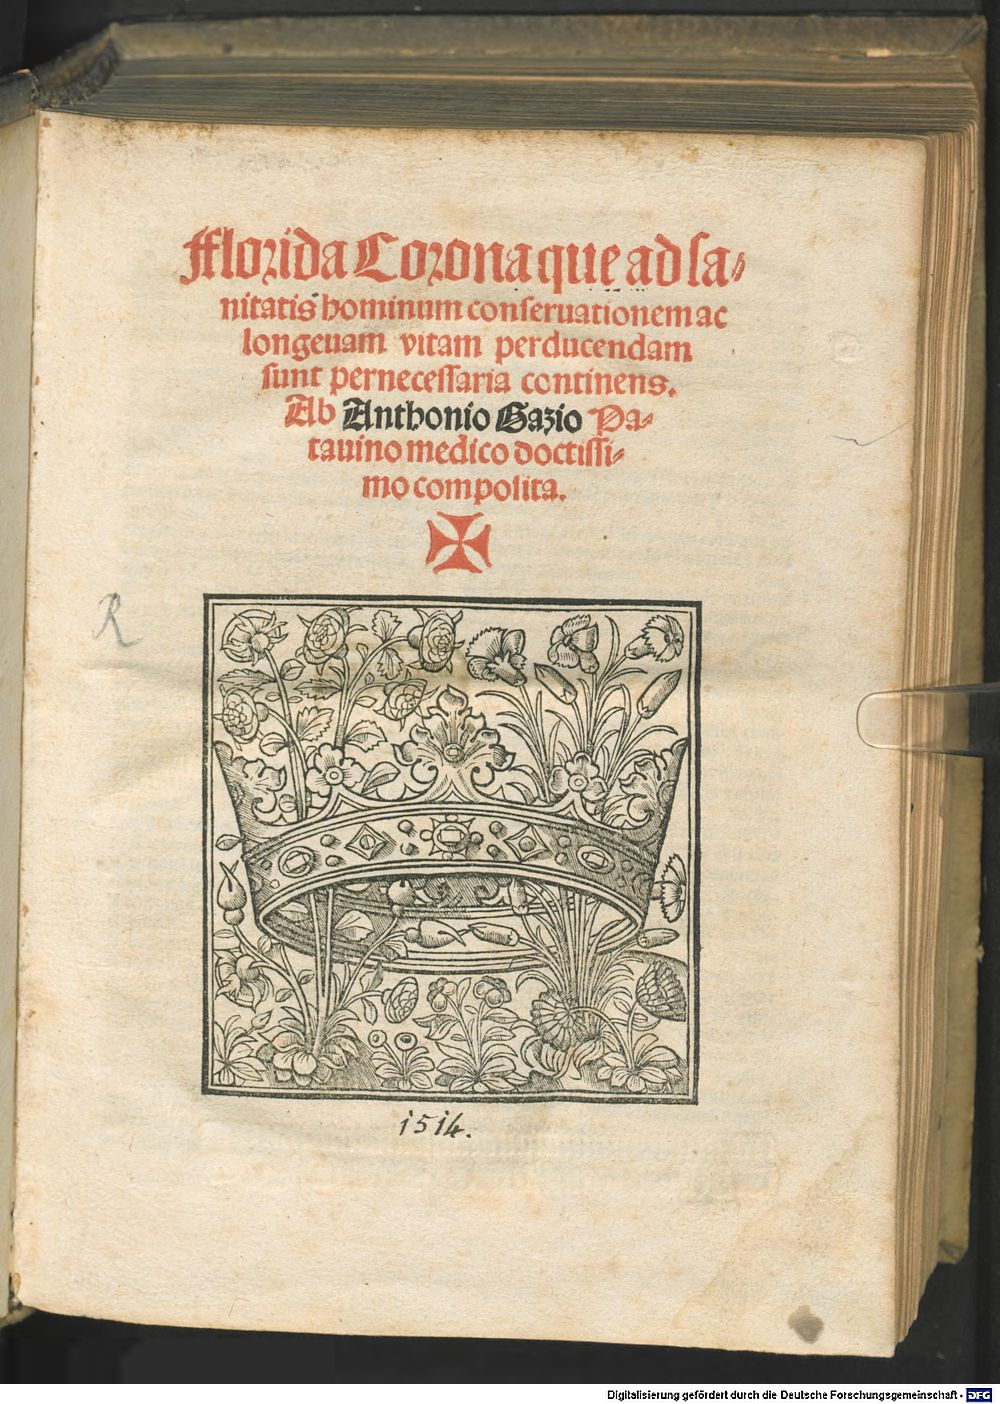 Florida Corona que ad sa-
nitatis hominum conseruationem ac
longeuam vitam perducendam
sunt pernecessaria continens.
Ab Anthonio Gazio Pa-
tauino medico doctissi-
mo composita.
R
1514.
Digitalisierung gefördert durch die Deutsche Forschungsgemeinschaft - DFG